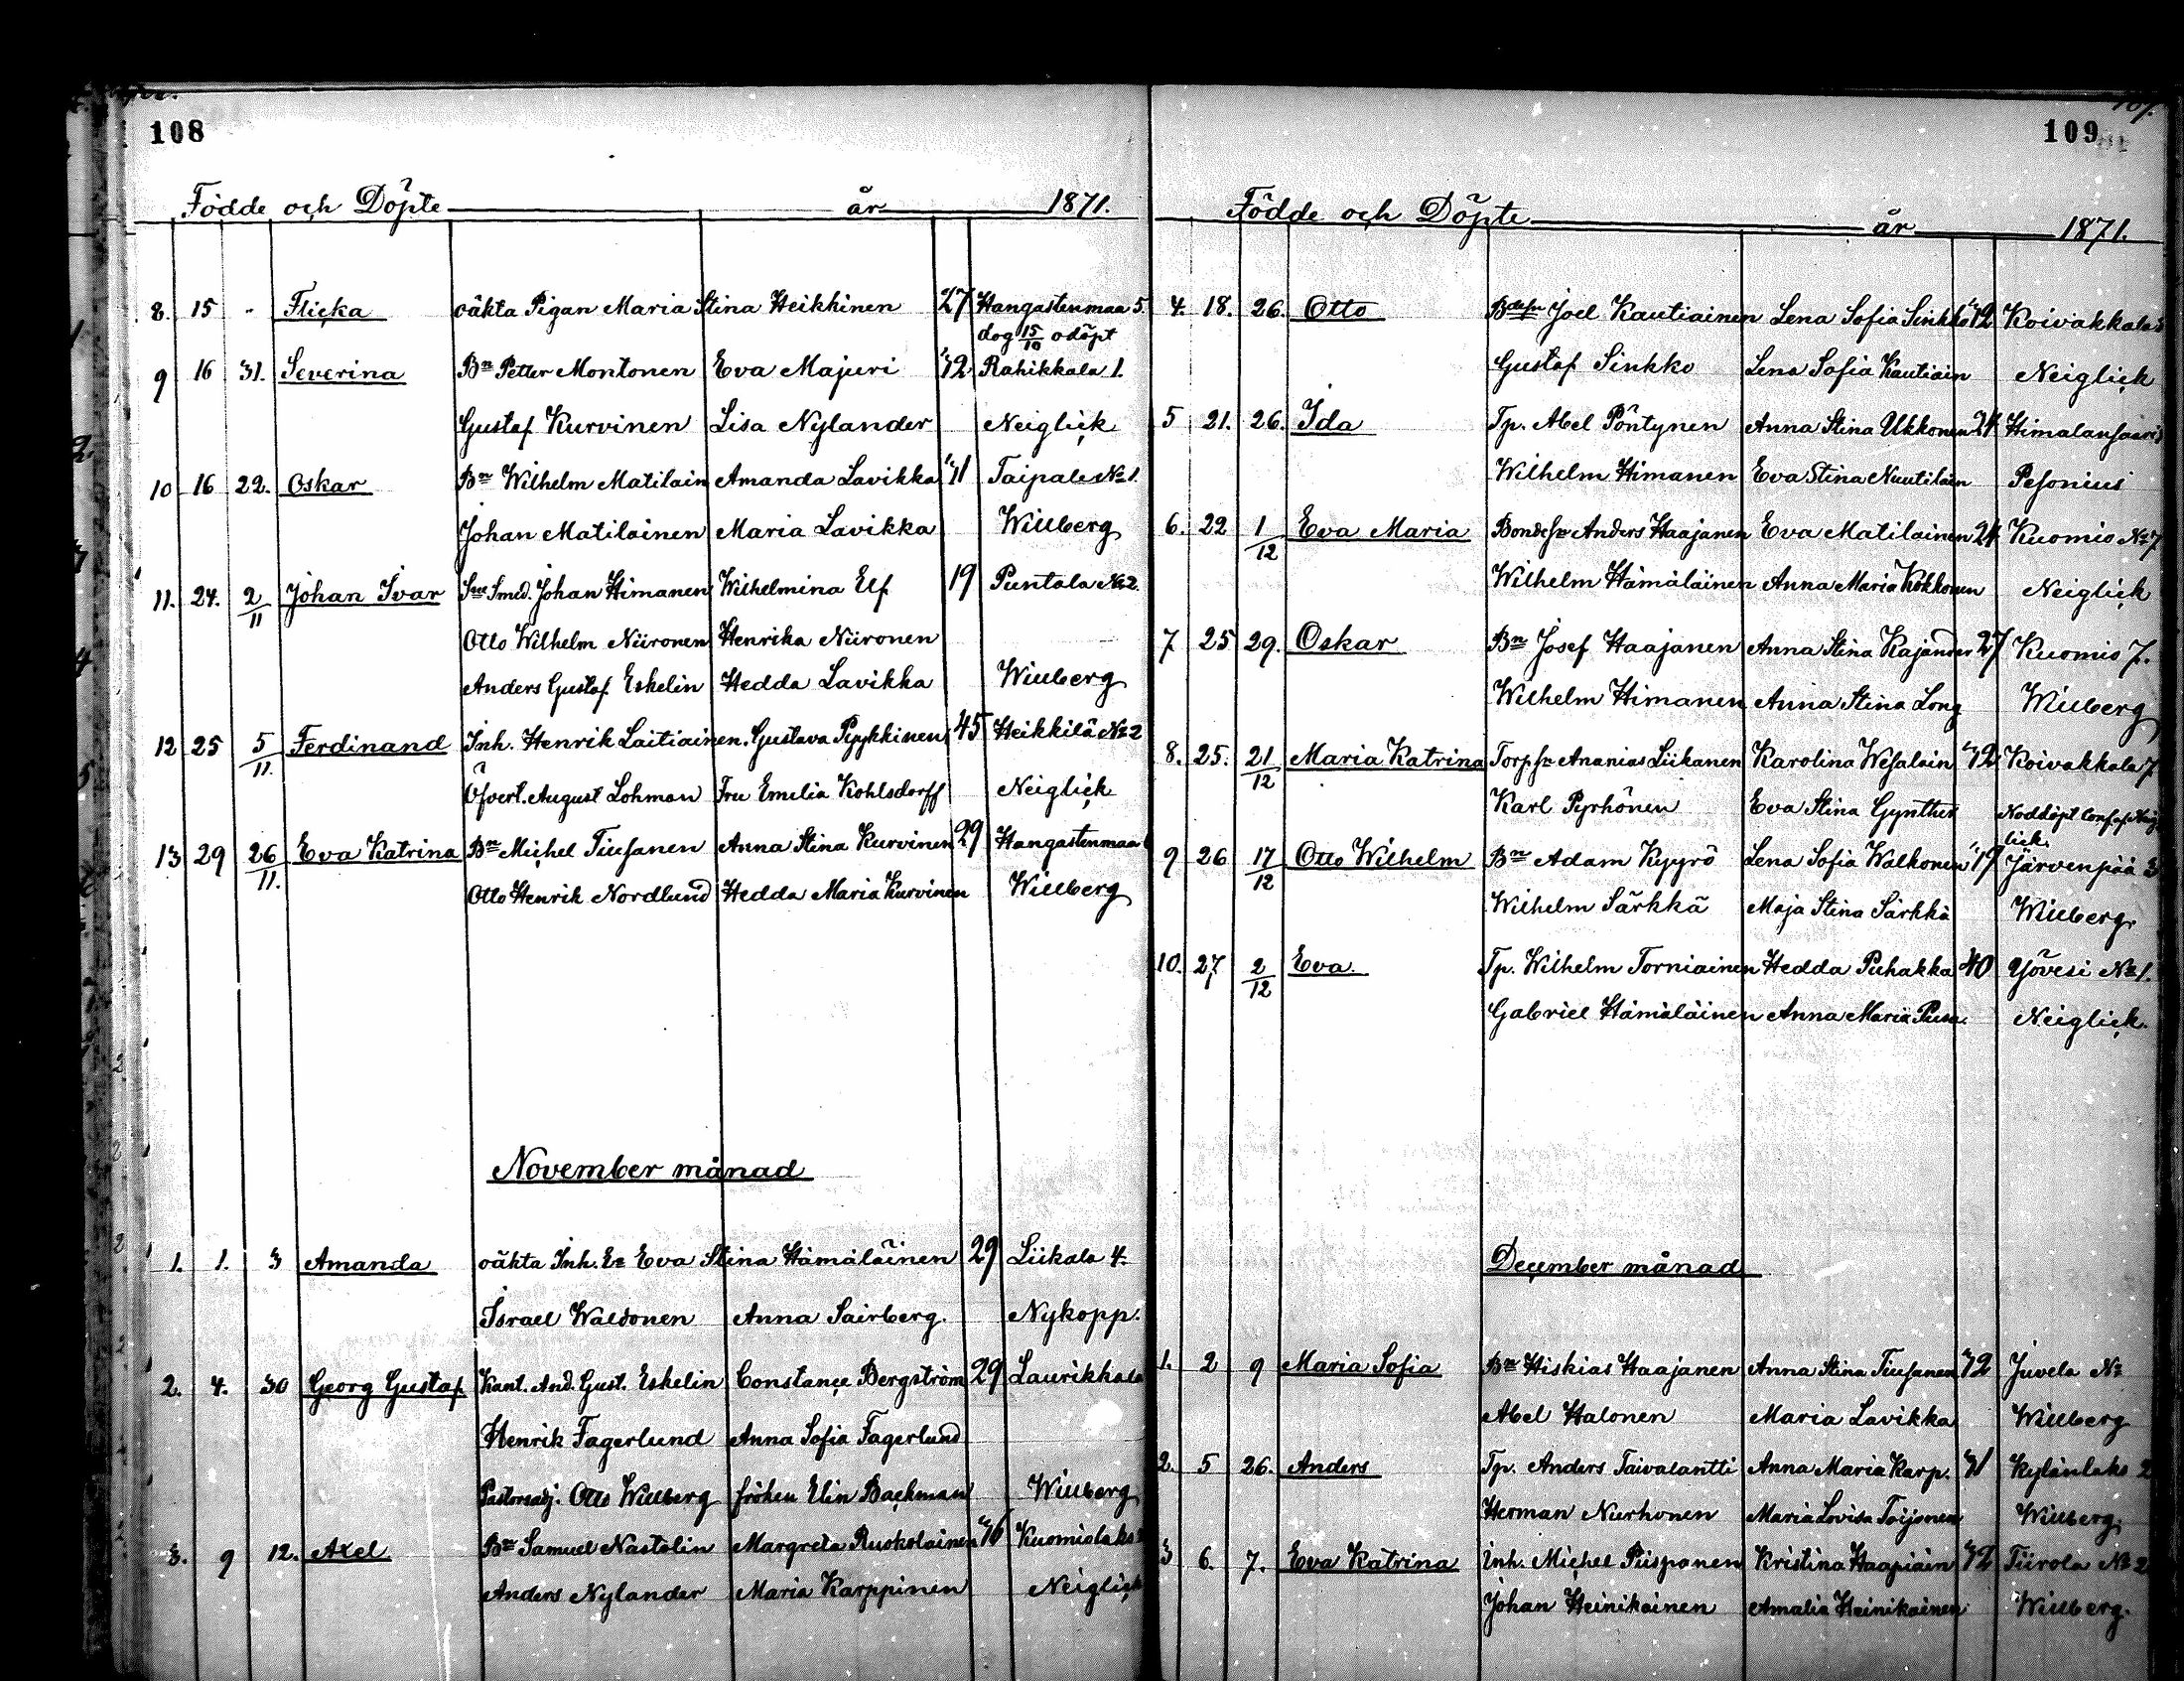 108
Födde och Döpte år 1871.
8. 15 - Flicka oäkta Pigan Maria Stina Heikkinen 27 Hangastenmaa 5.
dog 15/10 odöpt
9 16 31. Severina Bn Petter Montonen Eva Majuri 32 Rahikkala 1.
Gustaf Kurvinen Lisa Nylander Neiglick
10 16 22. Oskar Bn Wilhelm Matilain Amanda Lavikka 41 Taipale No 1.
Johan Matilainen Maria Lavikka Willberg
11. 24. 2/11 Johan Ivar Smed. Johan Himanen Wilhelmina Elf 19 Puntala No 2.
Otto Wilhelm Niironen Henrika Niironen
Anders Gustaf Eskelin Hedda Lavikka Willberg
12 25 5/11. Ferdinand Inh. Henrik Laitiainen. Gustava Pyykkinen 45 Heikkilä No 2
Öfverl. August Lohman Fru Emelia Kohlsdorff Neiglick
13 29 26/11. Eva Katrina Bn Michel Tiusanen Anna Stina Kurvinen 29 Hangastenmaa
Otto Henrik Nordlund Hedda Maria Kurvinen Willberg
November månad
1. 1. 3 Amanda oäkta Inh. Eva Stina Hämäläinen 29 Liikala 4.
Israel Waldonen Anna Sairberg. Nykopp.
2. 4. 30 Georg Gustaf Kant. And. Gust. Eskelin Constance Bergström 29 Laurikkala
Henrik Fagerlund Anna Sofia Fagerlund
Pastorsadj. Otto Willberg fröken Elin Backman Willberg
3. 9 12. Axel Bn Samuel Nastolin Margreta Ruokolainen Kuomiolaks
Anders Nylander Maria Karppinen Neiglick
109
Födde och Döpte år 1871.
4. 18. 26. Otto Joel Kautiainen Lena Sofia Sinkko Koivakkala
Gustaf Sinkko Lena Sofia Kautiain Neiglick
5 21. 26. Ida Tp. Abel Pöntynen Anna Stina Ukkonen 24 Himalansaari
Wilhelm Himanen Eva Stina Nuutiläin Pesonius
6. 22 1/12 Eva Maria Anders Haajanen Eva Matilainen 24 Kuomio No 7
Wilhelm Hämäläinen Anna Maria Kokkonen Neiglick
7 25 29. Oskar Bn Josef Haajanen Anna Stina Kajander 27 Kuomio 7.
Wilhelm Himanen Anna Stina Long Willberg
8. 25. 21/12 Maria Katrina Ananias Liikanen Karolina Wesalain Koivakkala 7
Karl Pyrhönen Eva Stina Gynther Nöddöpt
9 26 17/12 Otto Wilhelm Bn Adam Kyyrö Lena Sofia Walkonen Järvenpää 3
Wilhelm Särkkä Maja Stina Särkkä Willberg.
10. 27 2/12 Eva. Tp. Wilhelm Torniainen Hedda Puhakka 40 Yövesi No 1.
Gabriel Hämäläinen Anna Maria Pusa. Neiglick.
December månad
1. 2 9 Maria Sofia Bn Hiskias Haajanen Anna Stina Tiusanen Juvela No
Abel Halonen Maria Lavikka Willberg
2. 5 26. Anders Tp. Anders Taivalantti Anna Maria Karp. Kylänlaks 2
Herman Nurhonen Maria Lovisa Toijonen Willberg.
3 6. 7. Eva Katrina Inh. Michel Piispanen Kristina Haapiain Tiirola No 2
Johan Heinikainen Amalia Heinikainen Willberg.